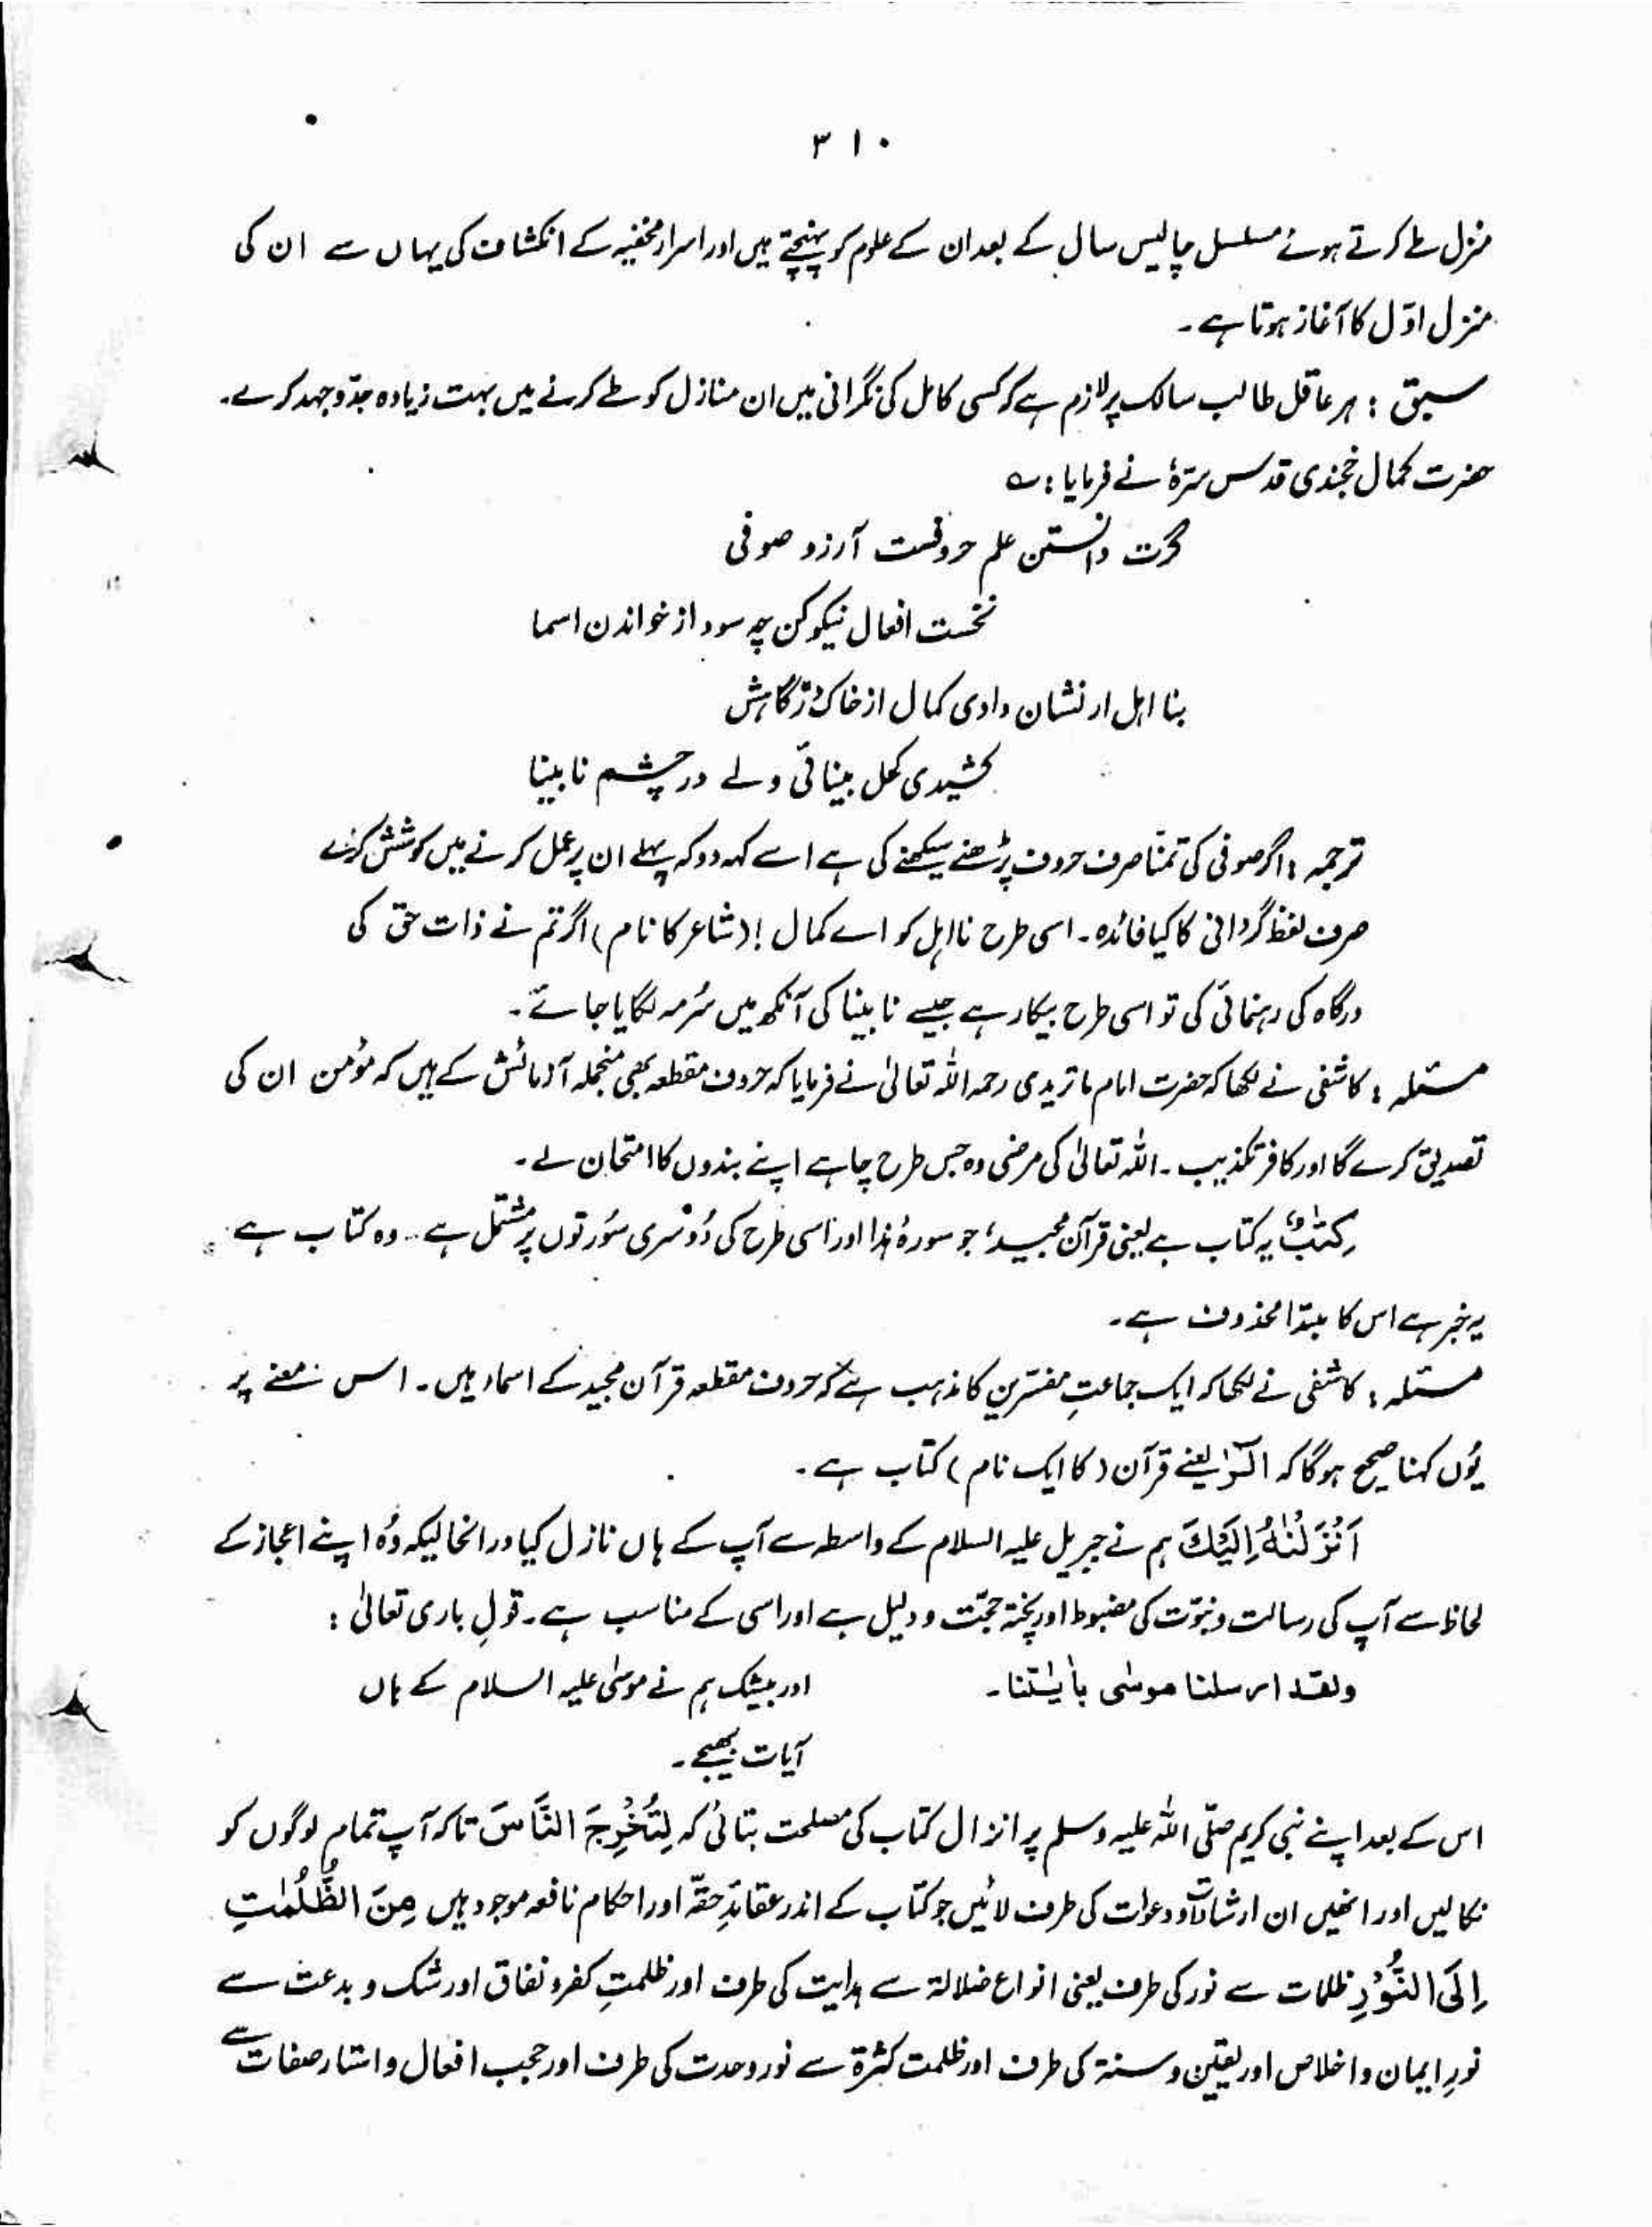 ۳۱۰
منزل طے کرتے ہوئے مسلسل چالیس سال کے بعد ان کے علوم کو پہنچتے ہیں اور اسرار مخفیہ کے انکشاف کی یہاں سے ان کی
منزل اوّل کا آغاز ہوتا ہے۔
سبق : ہر عاقل طالب سالک پر لازم ہے کہ کسی کامل کی نگرانی میں ان منازل کو طے کرنے میں بہت زیادہ جدّوجہد کرے۔
حضرت کمال خجندی قدس سرّہٗ نے فرمایا : ؎
گرت دانستن علم حروفست آرزو صوفی
نخست افعال نیکو کن چہ سود از خواندن اسما
بنا اہل ار نشان دادی کمال از خاک درگاہش
کشیدی کحل بینائی ولے در چشم نابینا
ترجمہ : اگر صوفی کی تمنّا صرف حروف پڑھنے سیکھنے کی ہے اسے کہہ دو کہ پہلے ان پر عمل کرنے میں کوشش کرے
صرف لفظ گردانی کا کیا فائدہ۔ اسی طرح نااہل کو اے کمال ! (شاعر کا نام) اگر تم نے ذات حق کی
درگاہ کی رہنمائی کی تو اسی طرح بیکار ہے جیسے نابینا کی آنکھ میں سُرمہ لگایا جائے۔
مسئلہ : کاشفی نے لکھا کہ حضرت امام ماتریدی رحمہ اللہ تعالیٰ نے فرمایا کہ حروف مقطعہ بھی منجملہ آزمائش کے ہیں کہ مؤمن ان کی
تصدیق کرے گا اور کافر تکذیب۔ اللہ تعالیٰ کی مرضی وہ جس طرح چاہے اپنے بندوں کا امتحان لے۔
کِتٰبٌ یہ کتاب ہے یعنی قرآن مجید، جو سورۂ ہٰذا اور اسی طرح کی دُوسری سُورتوں پر مشتمل ہے۔ وہ کتاب ہے
یہ خبر ہے اس کا مبتدا محذوف ہے۔
مسئلہ : کاشفی نے لکھا کہ ایک جماعتِ مفسّرین کا مذہب ہے کہ حروف مقطعہ قرآن مجید کے اسماء ہیں۔ اس معنے پر
یُوں کہنا صحیح ہوگا کہ الٓرٰ یعنے قرآن (کا ایک نام) کتاب ہے۔
اَنْزَلْنٰهُ اِلَیْكَ ہم نے جبریل علیہ السلام کے واسطہ سے آپ کے ہاں نازل کیا درانحالیکہ وُہ اپنے اعجاز کے
لحاظ سے آپ کی رسالت و نبوّت کی مضبوط اور پختہ حجّت و دلیل ہے اور اسی کے مناسب ہے۔ قولِ باری تعالیٰ :
ولقد ارسلنا موسٰی باٰیٰتنا۔ اور بیشک ہم نے موسیٰ علیہ السلام کے ہاں
آیات بھیجے۔
اس کے بعد اپنے نبی کریم صلّی اللہ علیہ وسلم پر انزال کتاب کی مصلحت بتائی کہ لِتُخْرِجَ النَّاسَ تاکہ آپ تمام لوگوں کو
نکالیں اور انھیں ان ارشادات و دعوات کی طرف لائیں جو کتاب کے اندر عقائدِ حقّہ اور احکام نافعہ موجود ہیں مِنَ الظُّلُمٰتِ
اِلَی النُّوْرِ ظلمات سے نور کی طرف یعنی انواع ضلالة سے ہدایت کی طرف اور ظلمتِ کفر و نفاق اور شک و بدعت سے
نورِ ایمان و اخلاص اور یقین و سنة کی طرف اور ظلمت کثرة سے نور وحدت کی طرف اور حجب افعال و استار صفات سے